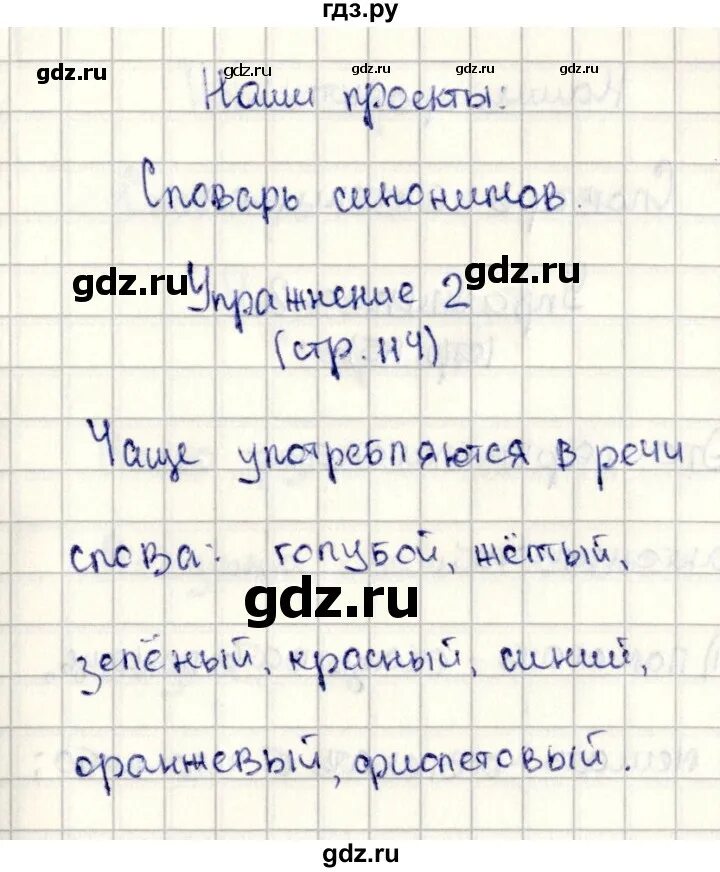 гдз.ру
gdz.ru gdz.ru gdz.ru gdz.ru gdz.ru
Наши проекты:
Словарь синонимов.
gdz.ru gdz.ru
Упражнение 2
(стр. 114)
Чаще употребляются в речи
слова: голубой, жёлтый,
gdz.ru
зелёный, красный, синий,
оранжевый, фиолетовый.
gdz.ru